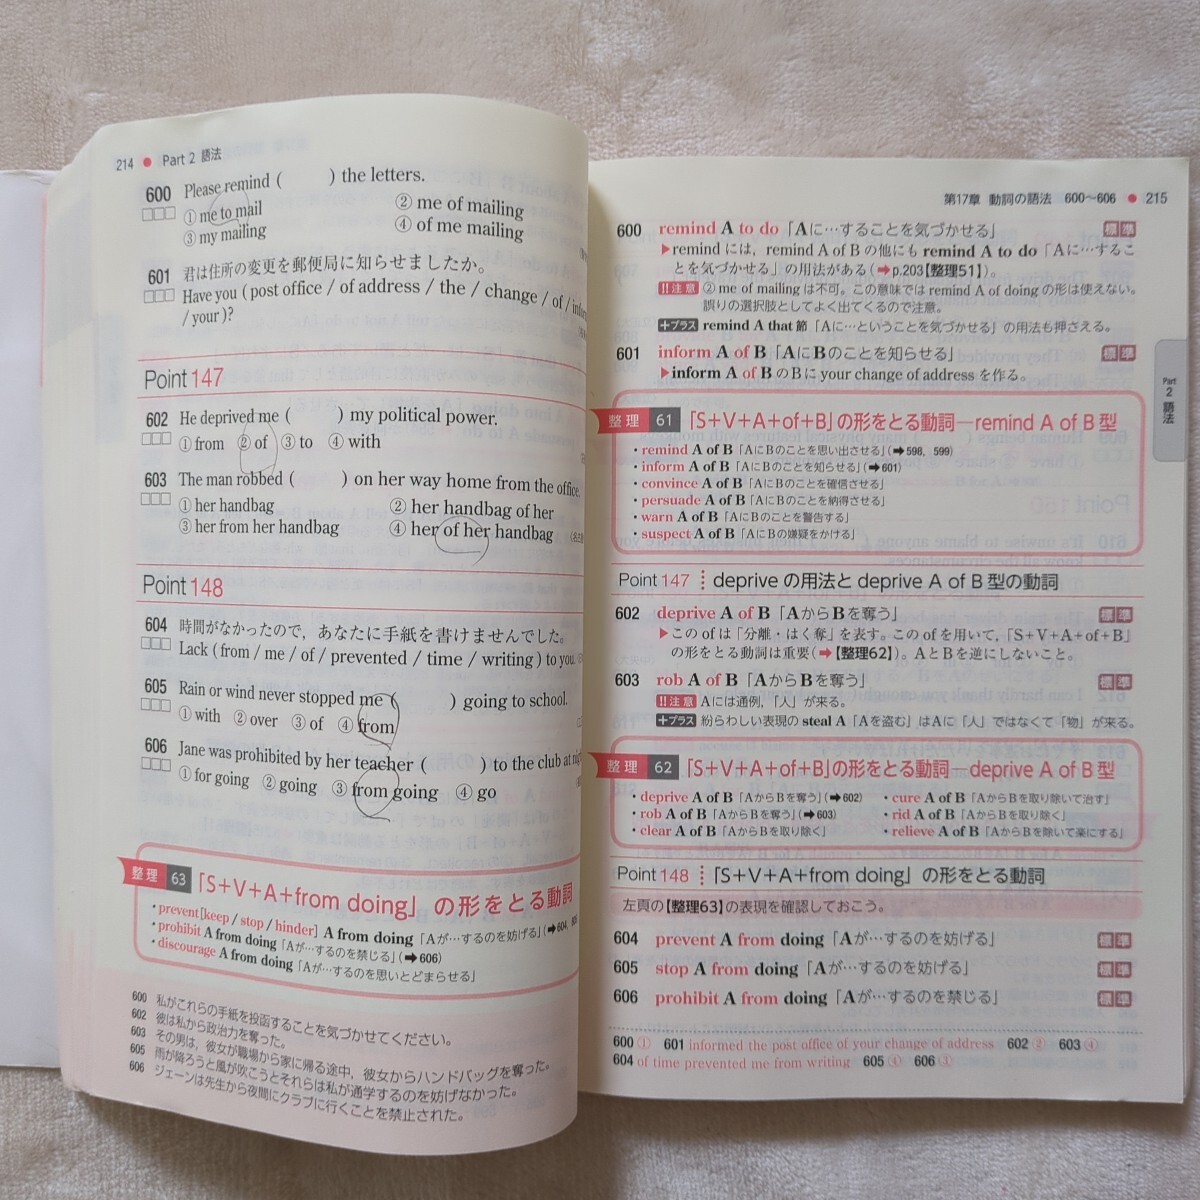 214 ● Part 2 語法
600 Please remind (　　) the letters.
① me to mail ② me of mailing
③ my mailing ④ of me mailing
601 君は住所の変更を郵便局に知らせましたか。
Have you ( post office / of address / the / change / of /
/ your )?
Point 147
602 He deprived me (　　) my political power.
① from ② of ③ to ④ with
603 The man robbed (　　) on her way home from the office.
① her handbag ② her handbag of her
③ her from her handbag ④ her of her handbag
Point 148
604 時間がなかったので，あなたに手紙を書けませんでした。
Lack ( from / me / of / prevented / time / writing ) to you.
605 Rain or wind never stopped me (　　) going to school.
① with ② over ③ of ④ from
606 Jane was prohibited by her teacher (　　) to the club at
① for going ② going ③ from going ④ go
整理 63 「S+V+A+from doing」の形をとる動詞
・prevent[keep / stop / hinder] A from doing「Aが…するのを妨げる」(➡604,
・prohibit A from doing「Aが…するのを禁じる」(➡606)
・discourage A from doing「Aが…するのを思いとどまらせる」
600 私がこれらの手紙を投函することを気づかせてください。
602 彼は私から政治力を奪った。
603 その男は，彼女が職場から家に帰る途中，彼女からハンドバッグを奪った。
605 雨が降ろうと風が吹こうとそれらは私が通学するのを妨げなかった。
606 ジェーンは先生から夜間にクラブに行くことを禁止された。
第17章 動詞の語法 600～606 ● 215
600 remind A to do「Aに…することを気づかせる」 標準
▶remind には，remind A of B の他にも remind A to do「Aに…するこ
とを気づかせる」の用法がある(➡p.203【整理51】)。
!!注意 ② me of mailing は不可。この意味では remind A of doing の形は使えない。
誤りの選択肢としてよく出てくるので注意。
＋プラス remind A that 節「Aに…ということを気づかせる」の用法も押さえる。
601 inform A of B「AにBのことを知らせる」 標準
▶inform A of B の B に your change of address を作る。
整理 61 「S+V+A+of+B」の形をとる動詞―remind A of B 型
・remind A of B「AにBのことを思い出させる」(➡598, 599)
・inform A of B「AにBのことを知らせる」(➡601)
・convince A of B「AにBのことを確信させる」
・persuade A of B「AにBのことを納得させる」
・warn A of B「AにBのことを警告する」
・suspect A of B「AにBの嫌疑をかける」
Point 147 deprive の用法と deprive A of B 型の動詞
602 deprive A of B「AからBを奪う」 標準
▶この of は「分離・はく奪」を表す。この of を用いて，「S+V+A+of+B」
の形をとる動詞は重要(➡【整理62】)。AとBを逆にしないこと。
603 rob A of B「AからBを奪う」 標準
!!注意 Aには通例，「人」が来る。
＋プラス 紛らわしい表現の steal A「Aを盗む」はAに「人」ではなくて「物」が来る。
整理 62 「S+V+A+of+B」の形をとる動詞―deprive A of B 型
・deprive A of B「AからBを奪う」(➡602) ・cure A of B「AからBを取り除いて治す」
・rob A of B「AからBを奪う」(➡603) ・rid A of B「AからBを取り除く」
・clear A of B「AからBを取り除く」 ・relieve A of B「AからBを除いて楽にする」
Point 148 「S+V+A+from doing」の形をとる動詞
左頁の【整理63】の表現を確認しておこう。
604 prevent A from doing「Aが…するのを妨げる」 標準
605 stop A from doing「Aが…するのを妨げる」 標準
606 prohibit A from doing「Aが…するのを禁じる」 標準
600 ① 601 informed the post office of your change of address 602 ② 603 ④
604 of time prevented me from writing 605 ④ 606 ③
Part 2 語法